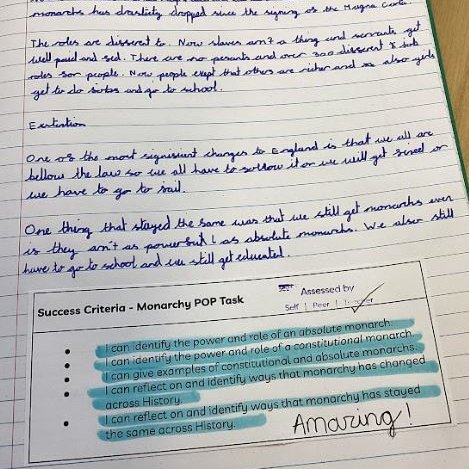 monarchs has drasticly dropped since the signing of the Magna Carta.
The roles are disserent to. Now slaves arn't a thing and servants get
well paid and fed. There are no pesants and over 300 disserent job
roles for people. Now people exept that others are richer and also girls
get to do jobs and go to school.
Extintion
One of the most signisient changes to England is that we all are
bellow the law so we all have to follow it or we will get fined or
we have to go to jail.
One thing that stayed the same was that we still get monarchs even
if they arn't as powerful as absolute monarchs. We also still
have to go to school and we still get educated.
Success Criteria - Monarchy POP Task
Assessed by
Self | Peer | Teacher
• I can identify the power and role of an absolute monarch.
• I can identify the power and role of a constitutional monarch.
• I can give examples of constitutional and absolute monarchs.
• I can reflect on and identify ways that monarchy has changed
across History.
• I can reflect on and identify ways that monarchy has stayed
the same across History.
Amazing!